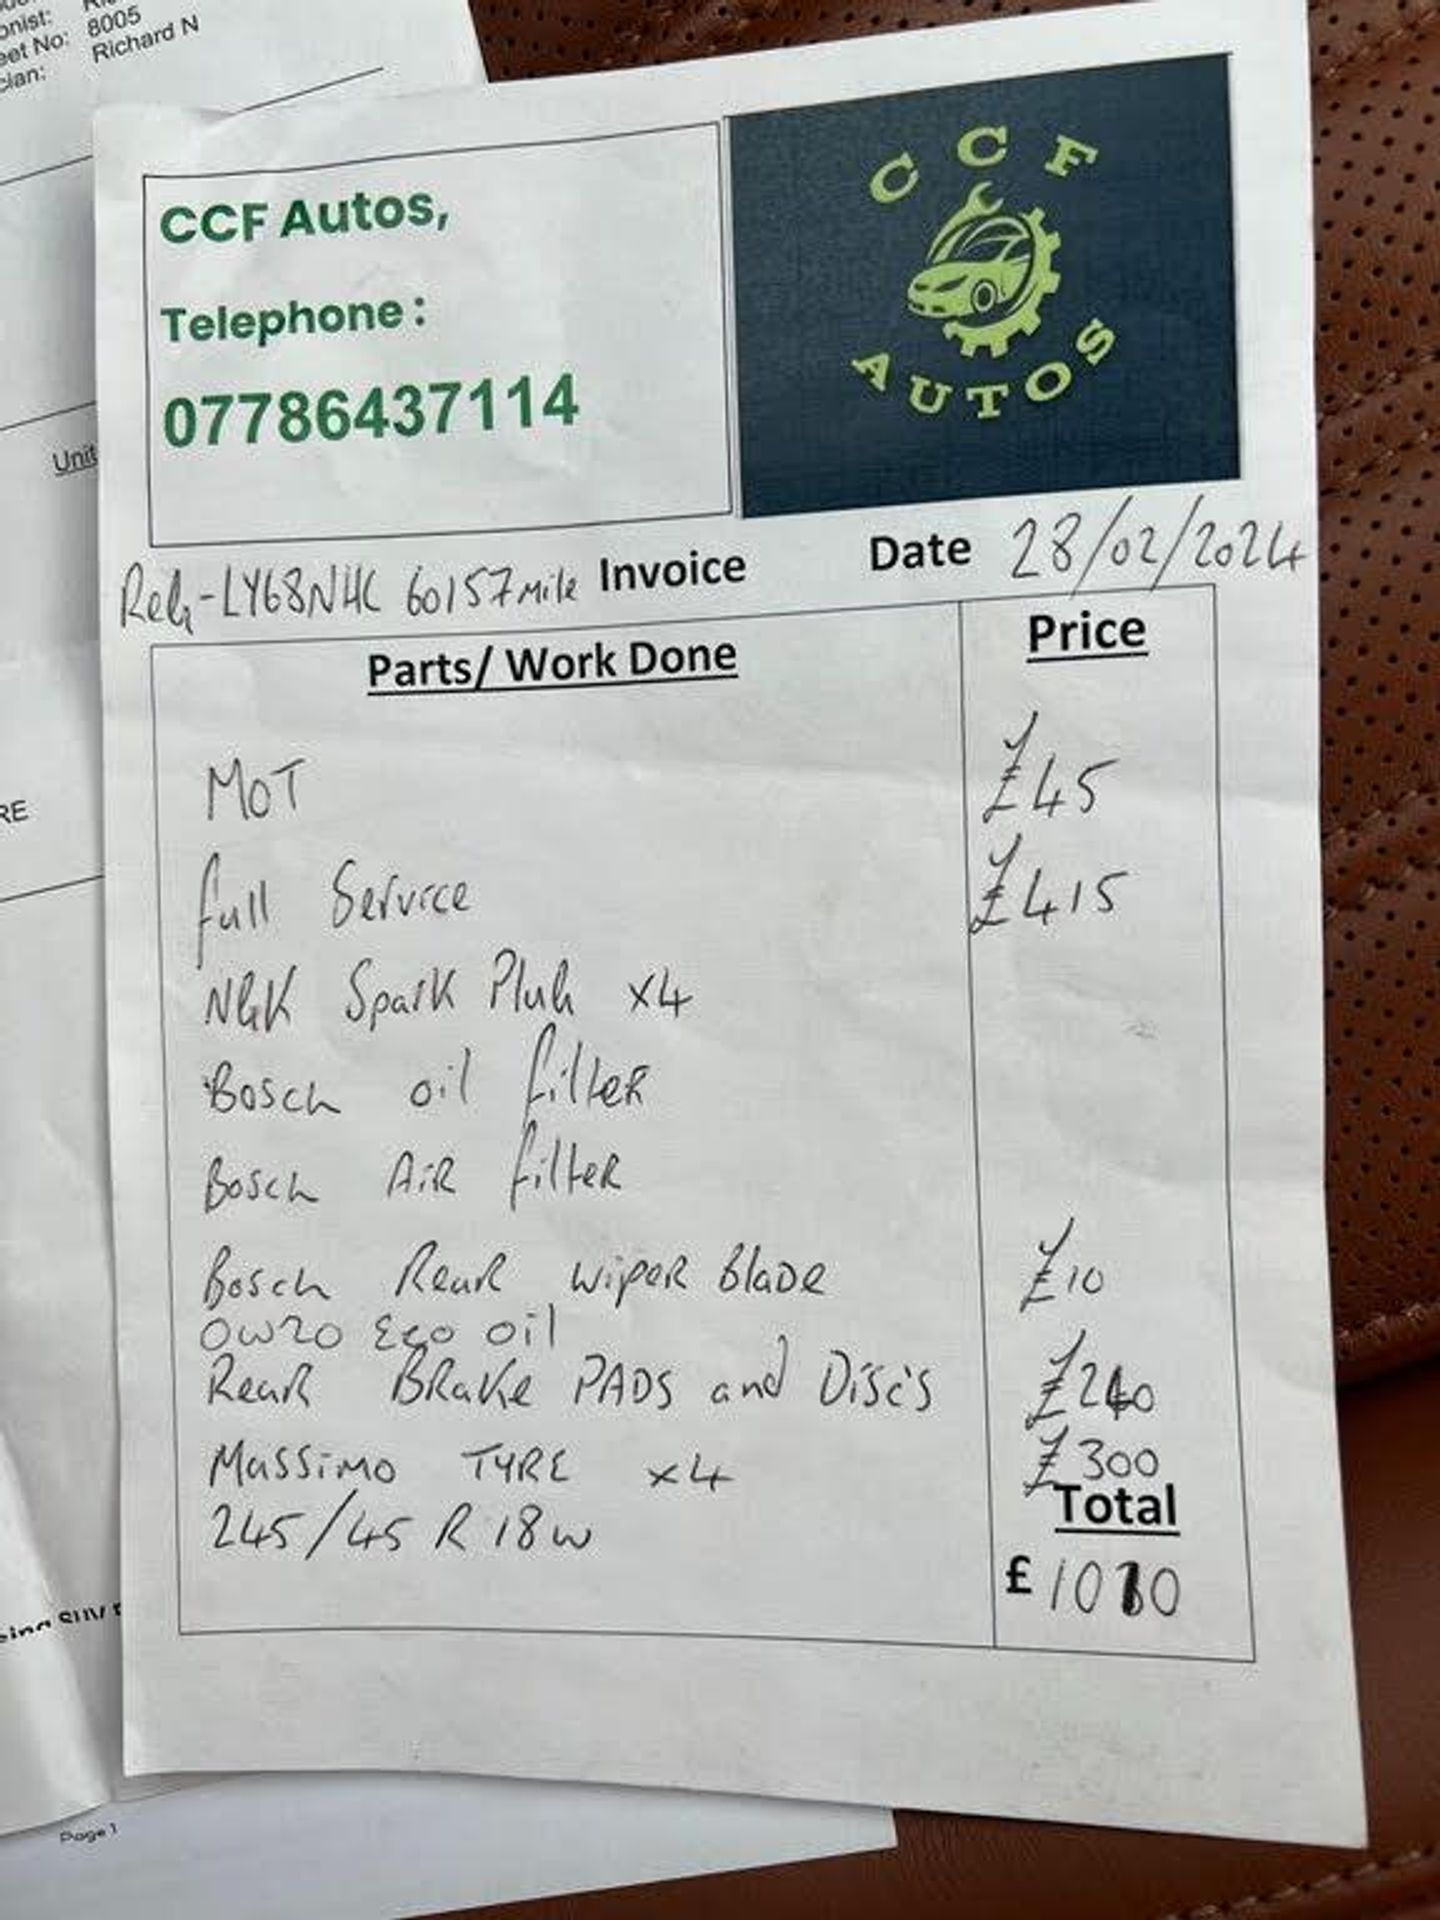 onist:
eet No: 8005
cian: Richard N
CCF Autos,
Telephone :
07786437114
CCF
AUTOS
Unit
Reg-LY68NHC 60157mile Invoice Date 28/02/2024
Parts/ Work Done Price
MOT £45
full Service £415
NGK Spark Plug x4
Bosch oil filter
Bosch AiR filter
Bosch Rear wiper Blade £10
0W20 Eco oil
Rear Brake PADS and Disc's £240
Massimo TYRE x4 £300
245/45 R 18w
Total
£ 1010
RE
Page 1